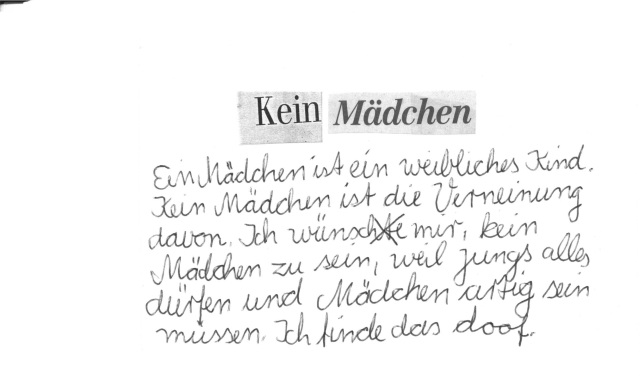 Kein Mädchen
Ein Mädchen ist ein weibliches Kind.
Kein Mädchen ist die Verneinung
davon. Ich wünsche mir, kein
Mädchen zu sein, weil Jungs alles
dürfen und Mädchen artig sein
müssen. Ich finde das doof.